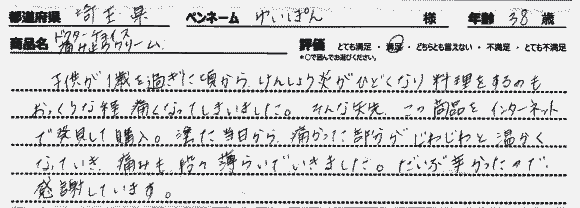 都道府県 埼玉県 ペンネーム けいぽん 様 年齢 38 歳
商品名 ドクターチョイス 痛み止めクリーム 評価 とても満足 ・ 満足 ・ どちらとも言えない ・ 不満足 ・ とても不満足
*○で囲んでお選びください。
子供が1歳を過ぎた頃から、けんしょう炎がひどくなり料理をするのも
おっくうな程 痛くなってしまいました。そんな矢先、この商品をインターネット
で発見して購入。塗った当日から、痛かった部分がじわじわと温かく
なっていき、痛みも段々薄らいでいきました。だいぶ辛かったので、
感謝しています。